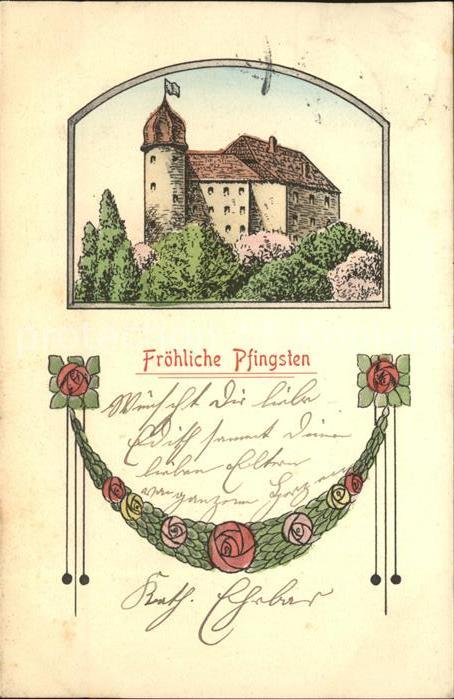 Fröhliche Pfingsten
Wünscht Dir liebe
Edith sammt Deinen
lieben Eltern
von ganzem Herzen
Kath. Ehrbar